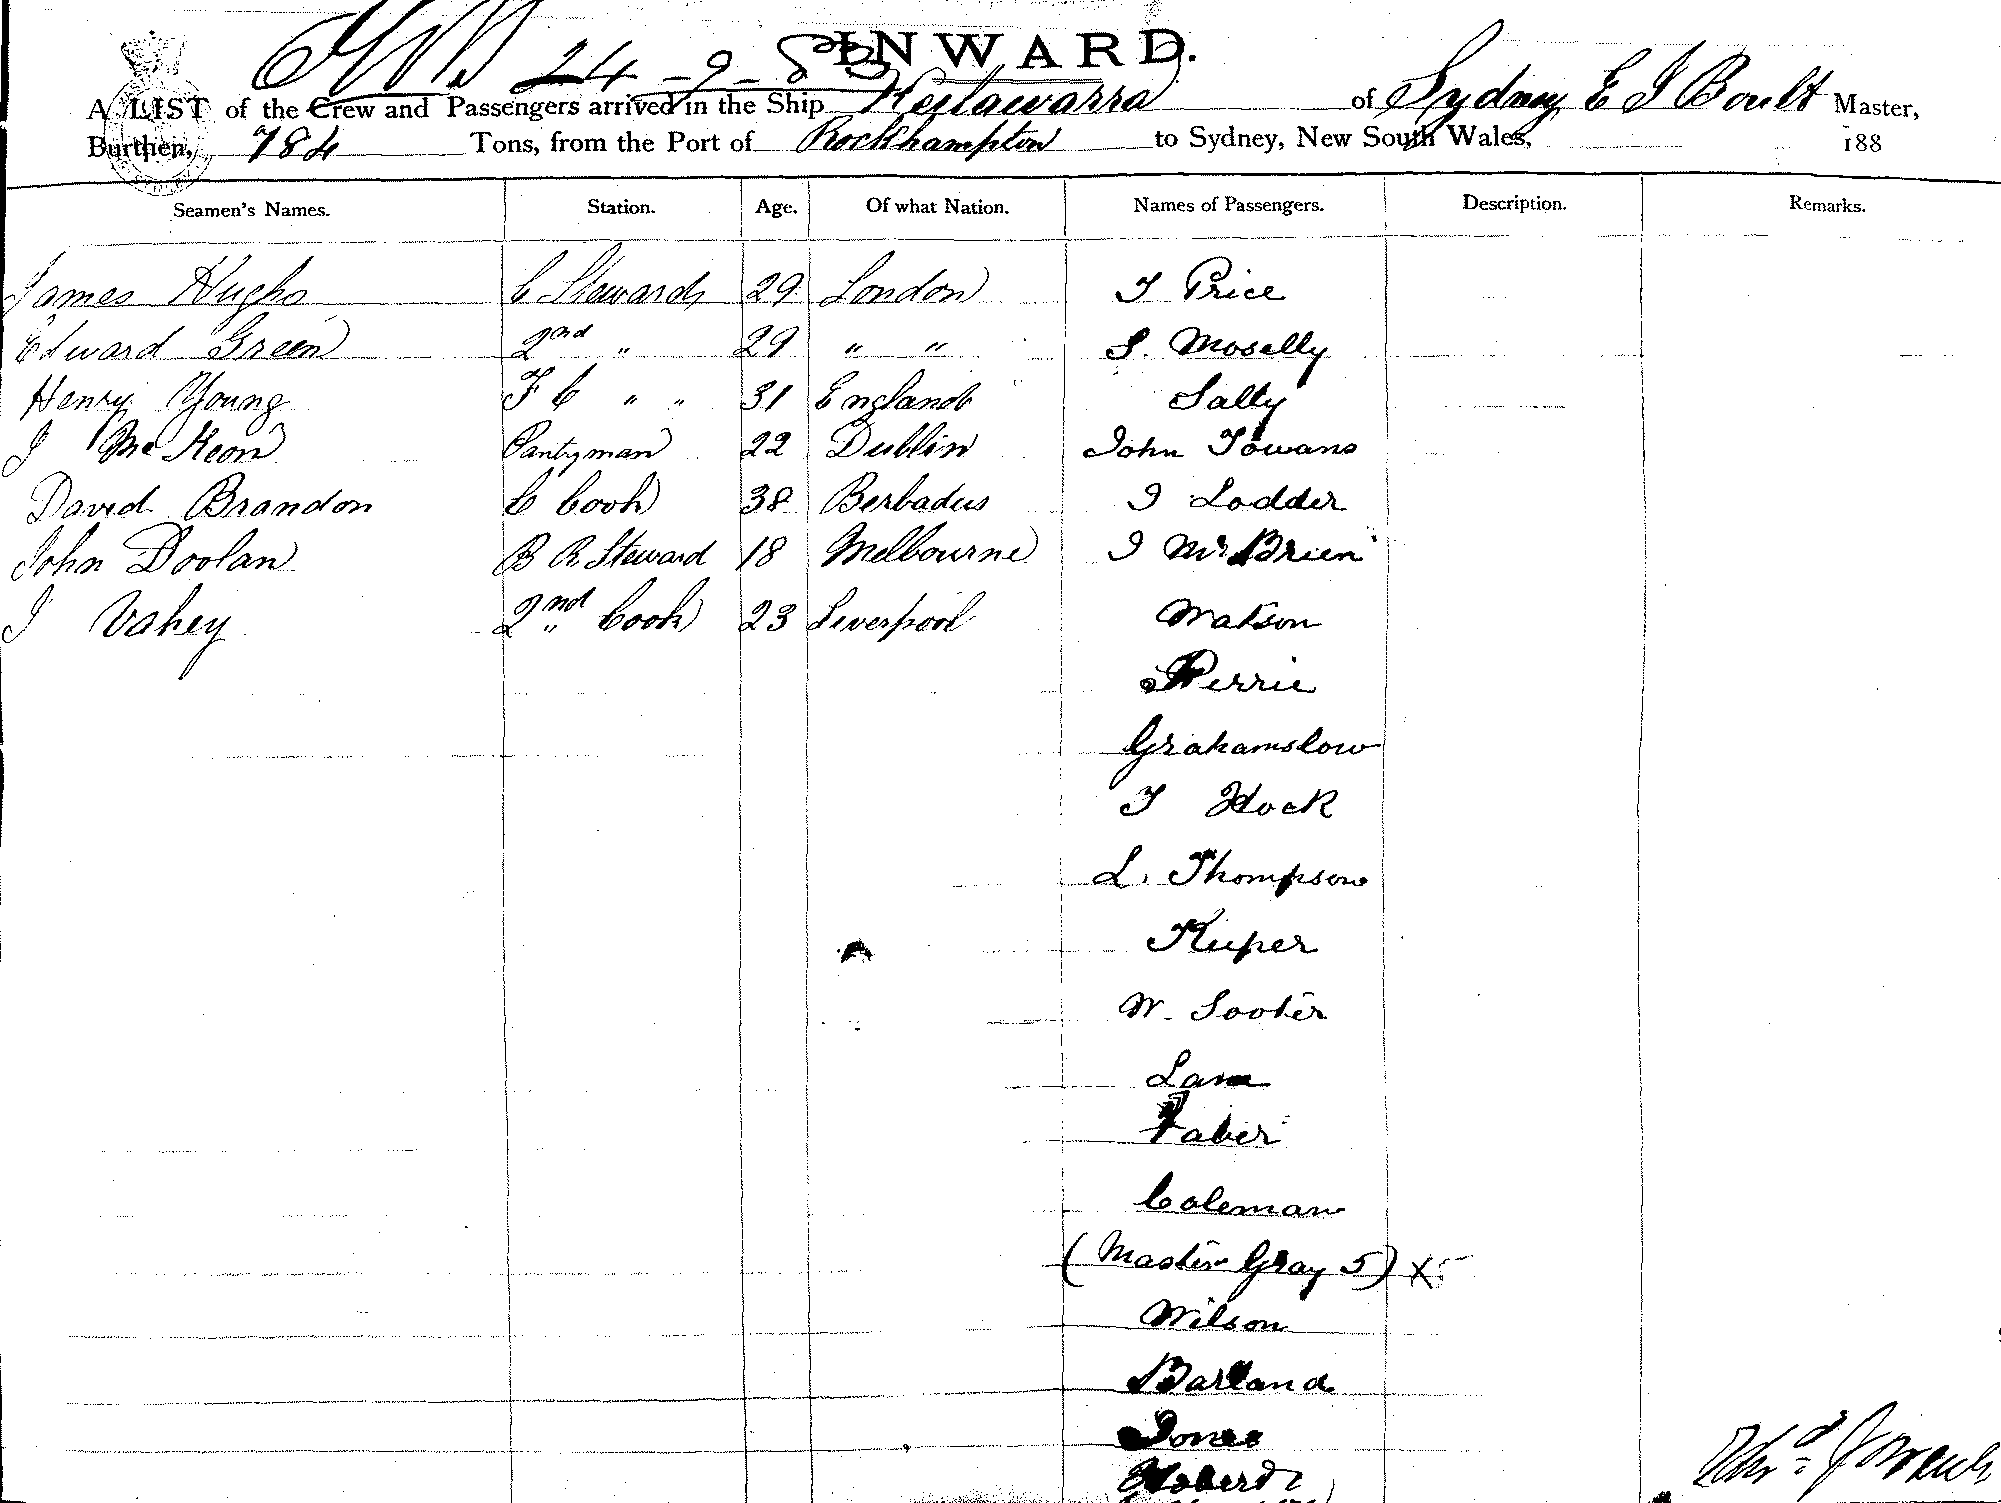 24-9-83 INWARD.
A LIST of the Crew and Passengers arrived in the Ship Keilawarra of Sydney E J Boult Master,
Burthen, 784 Tons, from the Port of Rockhampton to Sydney, New South Wales, 188
Seamen's Names. Station. Age. Of what Nation. Names of Passengers. Description. Remarks.
James Hughs C Steward 29 London J Price
Edward Green 2nd " 29 " " S. Moselly
Henry Young F C " " 31 England Sally
J McKeon Pantyman 22 Dublin John Towans
David Brandon C Cook 38 Berbadus J Lodder
John Doolan B R Steward 18 Melbourne J McBrien
J Vahey 2nd Cook 23 Liverpool Watson
Perrie
Grahamslow
J Hock
L. Thompson
Kuper
W. Sooter
Lane
Faber
Coleman
(Master Gray 5) X
Wilson
Barland
Jones